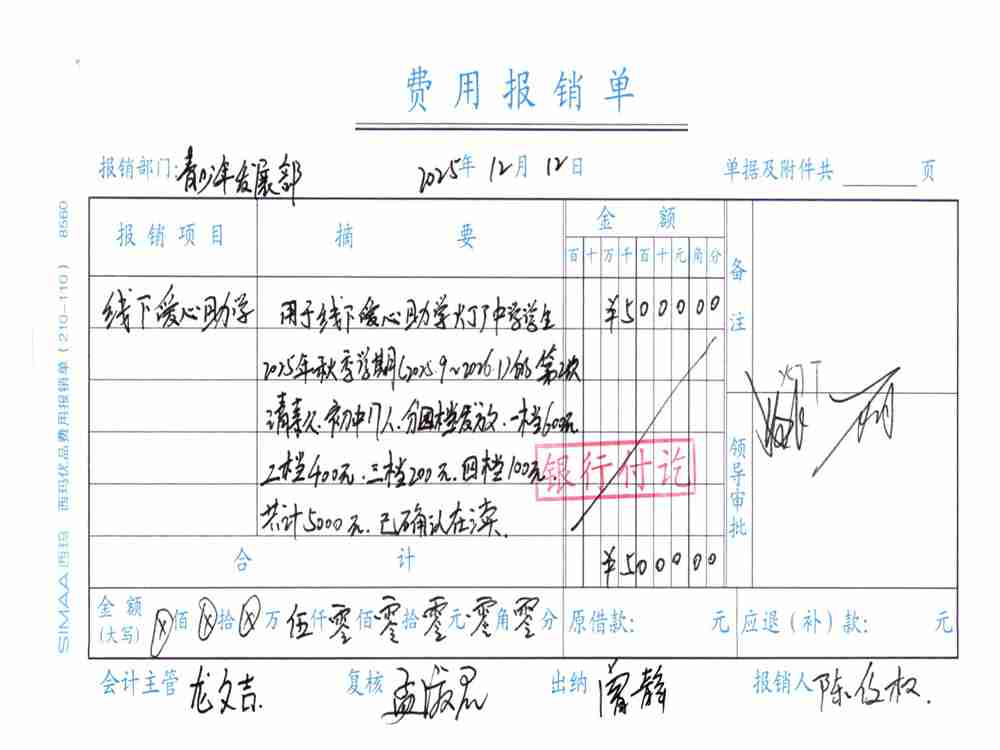 费用报销单
报销部门:青少年发展部 2025年12月12日 单据及附件共 页
报销项目 摘要 金额 备注
百十万千百十元角分
线下爱心助学 用于线下爱心助学 中学学生 ¥500000
2025年秋季学期(2025.9~2026.1)的第2次
请款.初中17人.分四档发放.一档600元
二档400元.三档200元.四档100元.
银行付讫
共计5000元.已确认在读.
领导审批
合计 ¥500000
金额(大写) ⊗佰⊗拾⊗万伍仟零佰零拾零元零角零分 原借款: 元 应退(补)款: 元
会计主管 龙文吉. 复核 孟 出纳 曾静 报销人 陈 权.
SIMAA 西玛 西玛优品费用报销单(210-110) 8560